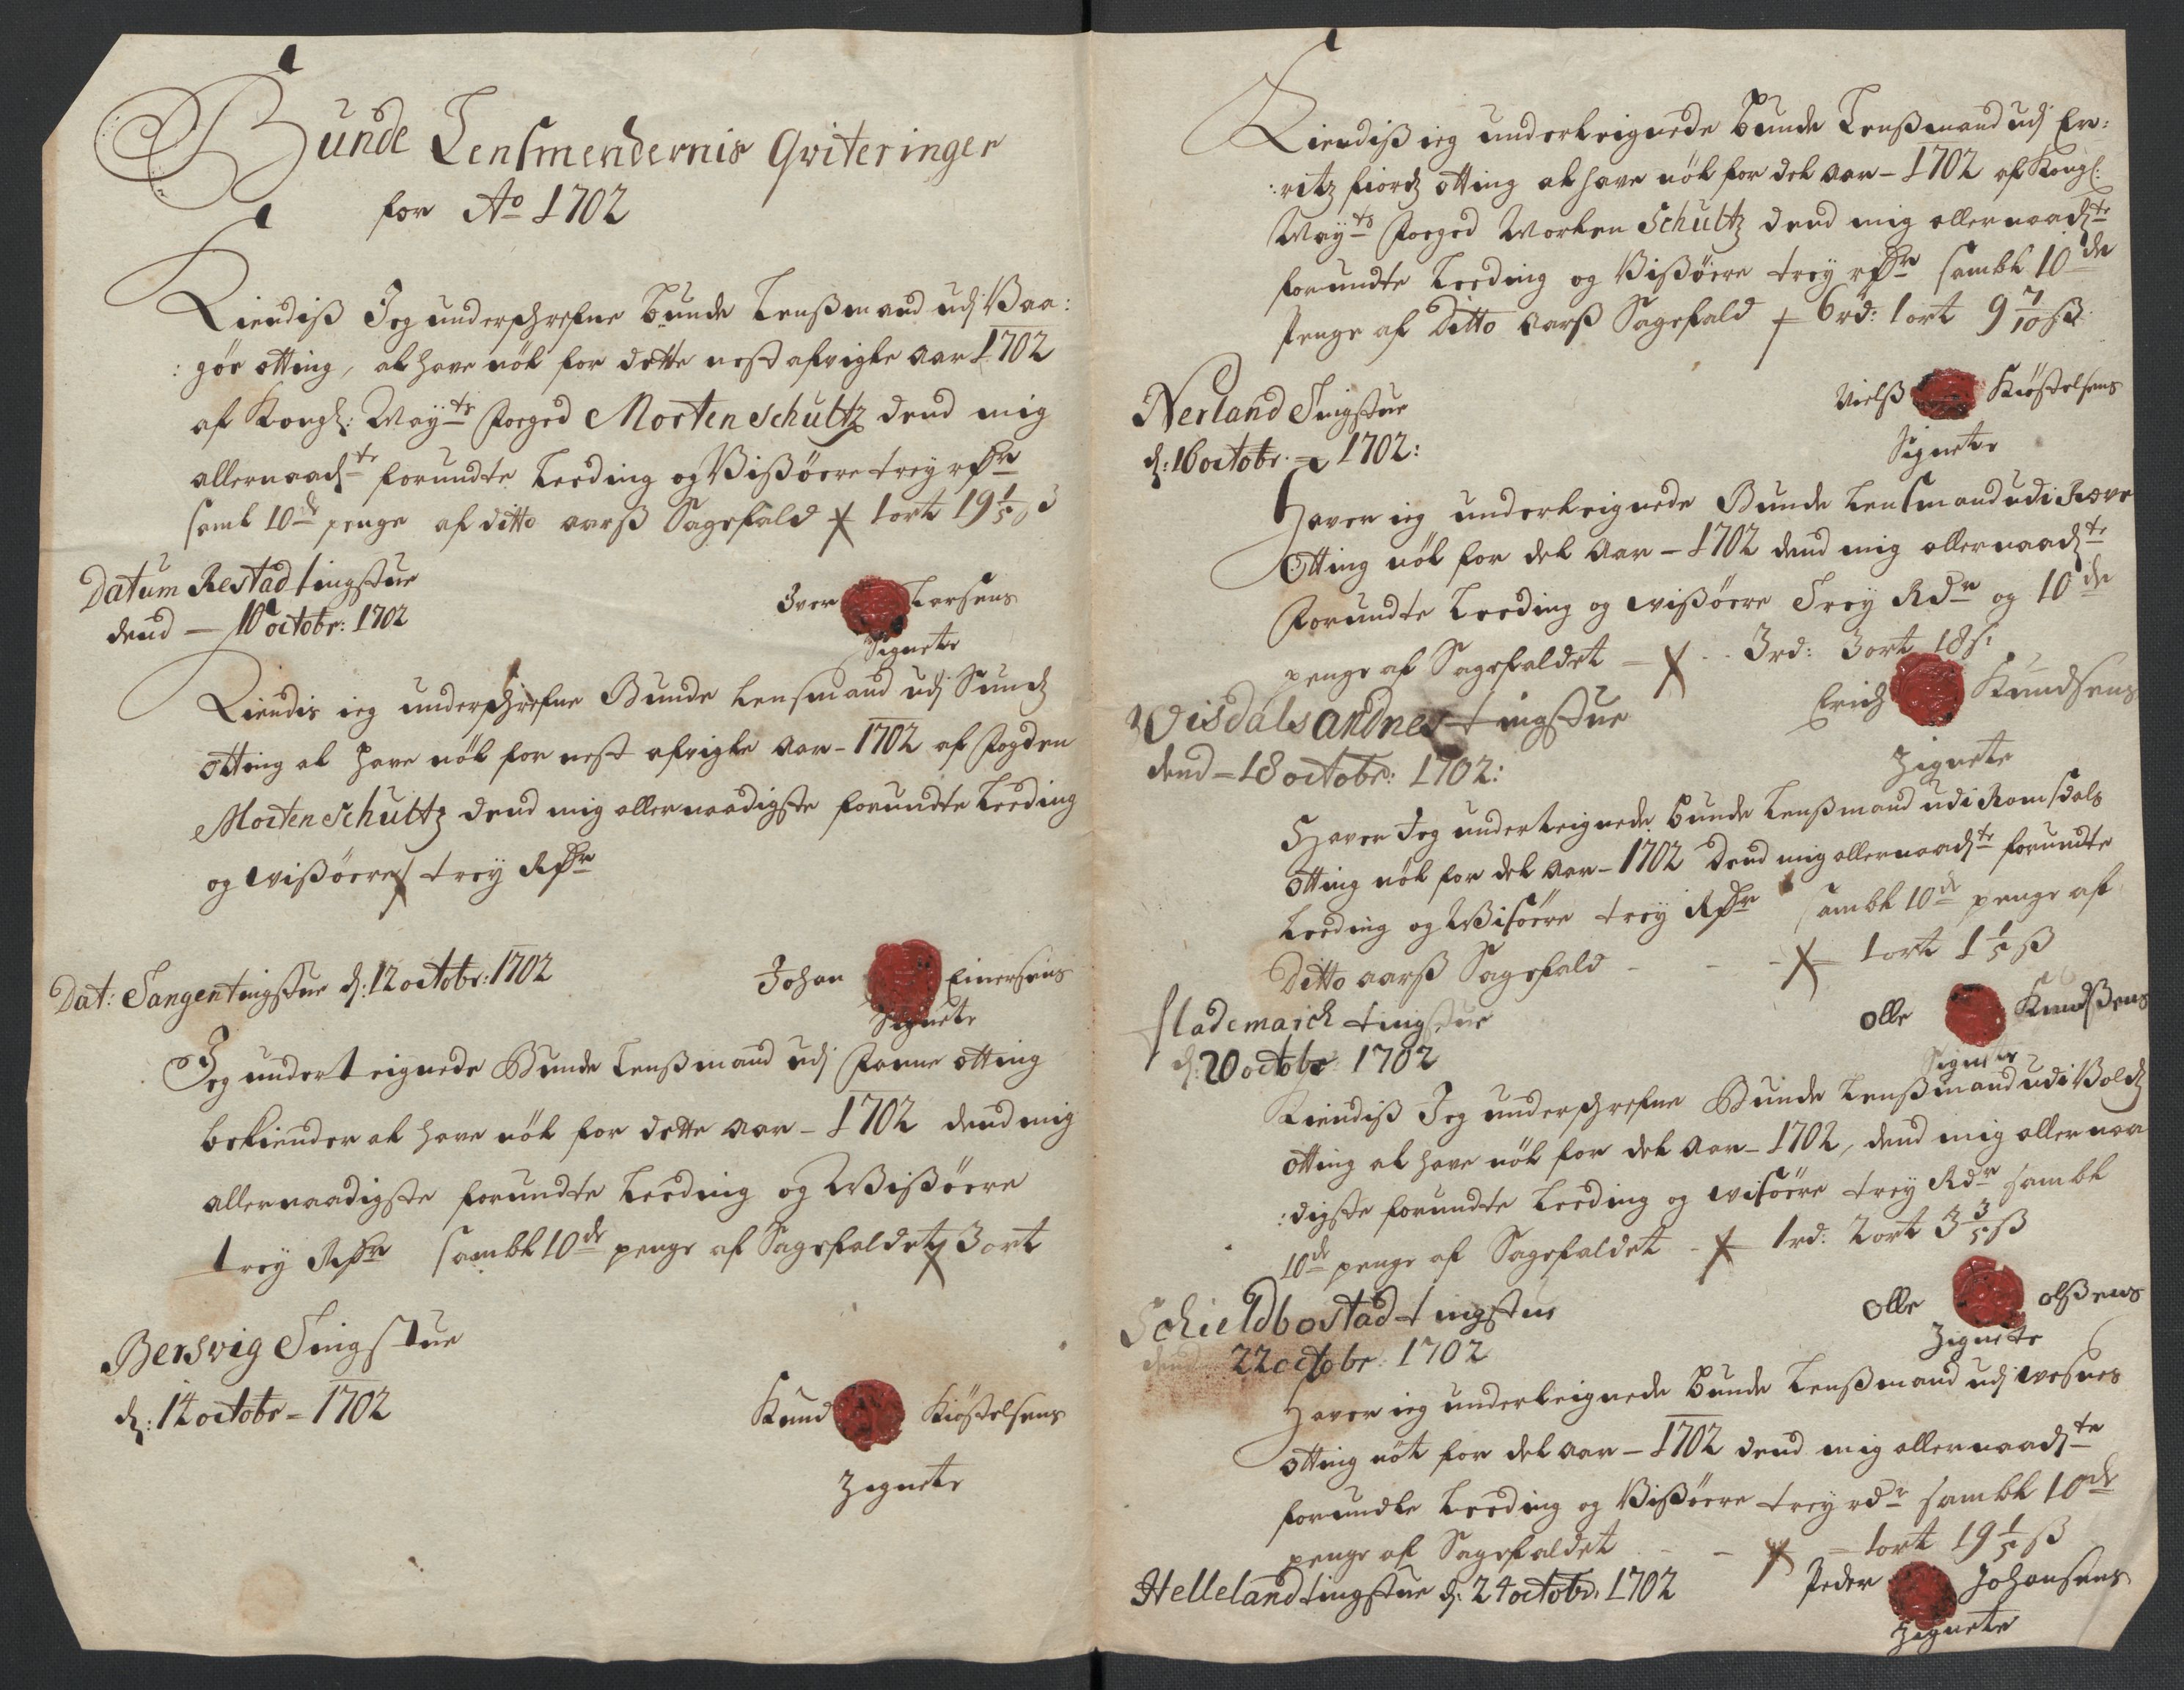 Bunde Lensmendernis Qviteringer
for Ao 1702
Kiendiß Jeg underschrefne bunde Lenßmand udj Vaa:
:göe otting, at have nöt for dette nest afvigte aar 1702
af Kongl: May:ts Foged Morten Schultz dend mig
allernaad:te forundte Leeding og Vißöere trey rdr
samt 10de penge af ditto aarß Sagefald 1 ort 19 1/5 ß
Datum Restad tingstue
dend - 10 octobr: 1702
Iver Larsens
Signete
Kiendis ieg underschrefne Bunde lensmand udj Sundz
otting at have nöt for nest afvigte aar - 1702 af fogden
Morten Schultz dend mig allernaadigste forundte Leeding
og wißöere trey Rdr
Dat: Tangen tingstue d: 12 octobr: 1702
Johan Einersens
Signete
Jeg underteignede Bunde Lenßmand udj Fanne otting
bekiender at have nöt for dette aar - 1702 dend mig
allernaadigste forundte Leeding og Wißöere
trey Rdr sambt 10de penge af Sagefaldet 3 ort
Bersvig Tingstue
d: 14 octobr - 1702
Knud Kiöstelsens
Zignete
Kiendiß ieg underteignede bunde Lenßmand udj Er:
:ritz fiordz otting at have nöt for det aar - 1702 af Kongl:
May:ts Foged Morten Schultz dend mig allernaad:te
forundte Leeding og Vißöere trey rdr sambt 10de
penge af Ditto aarß Sagefald 6 rd: 1 ort 9 7/10 ß
Nerland Tingstue
d: 16 octobr - 1702:
Nielß Kiöstelsens
Signete
Haver ieg underteignede Bunde lensmand udi Røvs
Otting nöt for det aar - 1702 dend mig allernaad:te
Forundte Leeding og wißöere Trey Rdr og 10de
penge af Sagefaldet - 3 rd: 3 ort 18 ß:
Wisdalsandnes tingstue
dend - 18 octobr: 1702:
Erich Knudsens
Zignete
Haver Jeg underteignede bunde Lenßmand udi Romsdals
Otting nöt for det aar - 1702 Dend mig allernaad:te forundte
Leeding og Wisöere trey Rdr sambt 10de penge af
Ditto aarß Sagefald - - - 1 ort 1 1/5 ß
Flademarch tingstue
d: 20 octobr 1702
Olle Knudßens
Signete
Kiendiß Jeg underschrefne Bunde Lenßmand udi Voldz
otting at have nöt for det aar - 1702, dend mig allernaa
:digste forundte Leeding og wisöere trey Rdr sambt
10de penge af Sagefaldet - 1 rd: 2 ort 3 3/5 ß
Schieldbostad tingstue
dend 22 octobr: 1702
Olle olßens
Zignete
Haver ieg underteignede bunde Lenßmand udj wesnes
otting nöt for det aar - 1702 dend mig allernaad:te
forundte Leeding og Vißöere trey rdr sambt 10de
penge af Sagefaldet - - - 1 ort 19 1/5 ß
Helleland tingstue d: 24 octobr: 1702
Peder Johansens
Zignete